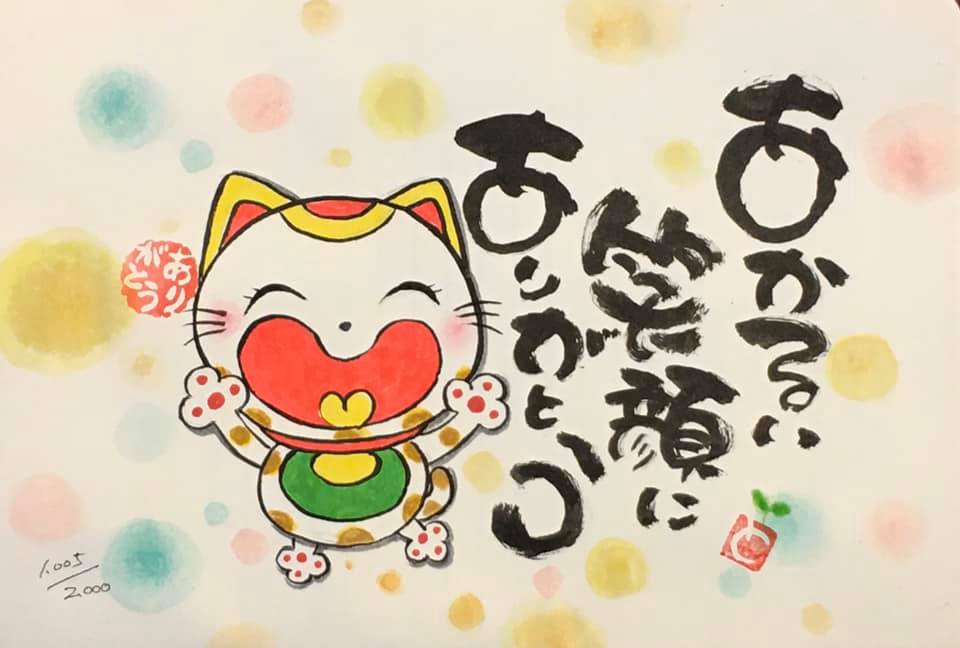 あかるい
笑顔に
ありがとう
あり
がとう
1.005
2.000